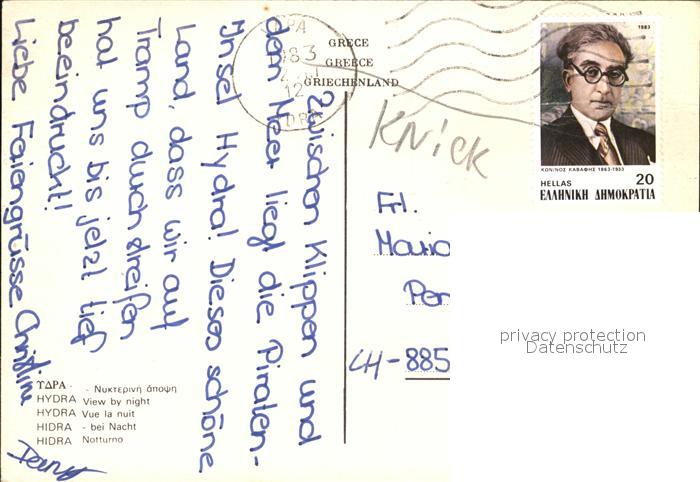 Zwischen Klippen und
dem Meer liegt die Piraten-
Insel Hydra! Dieses schöne
Land, dass wir auf
Tramp durchstreifen
hat uns bis jetzt tief
beeindruckt!
Liebe Feriengrüsse Christina
ΥΔΡΑ - Νυκτερινή άποψη
HYDRA View by night
HYDRA Vue la nuit
HIDRA - bei Nacht
HIDRA Notturno
GRECE
GREECE
GRIECHENLAND
83
12
KNiCK
Frl.
Maria
CH-885
1983
ΚΩΝ/ΝΟΣ ΚΑΒΑΦΗΣ 1863-1933
HELLAS 20
ΕΛΛΗΝΙΚΗ ΔΗΜΟΚΡΑΤΙΑ
privacy protection
Datenschutz